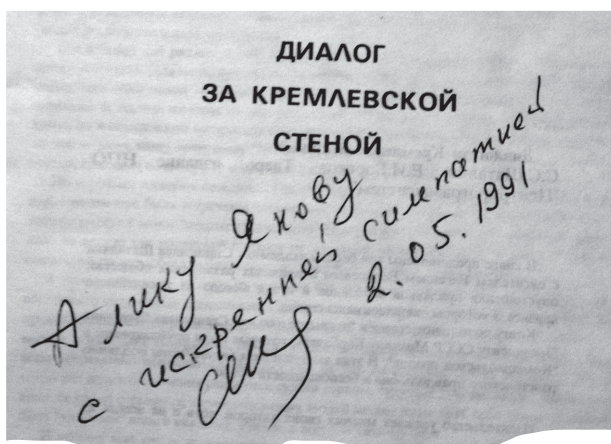 ДИАЛОГ
ЗА КРЕМЛЕВСКОЙ
СТЕНОЙ
Алику Янову
с искренней симпатией
2.05.1991